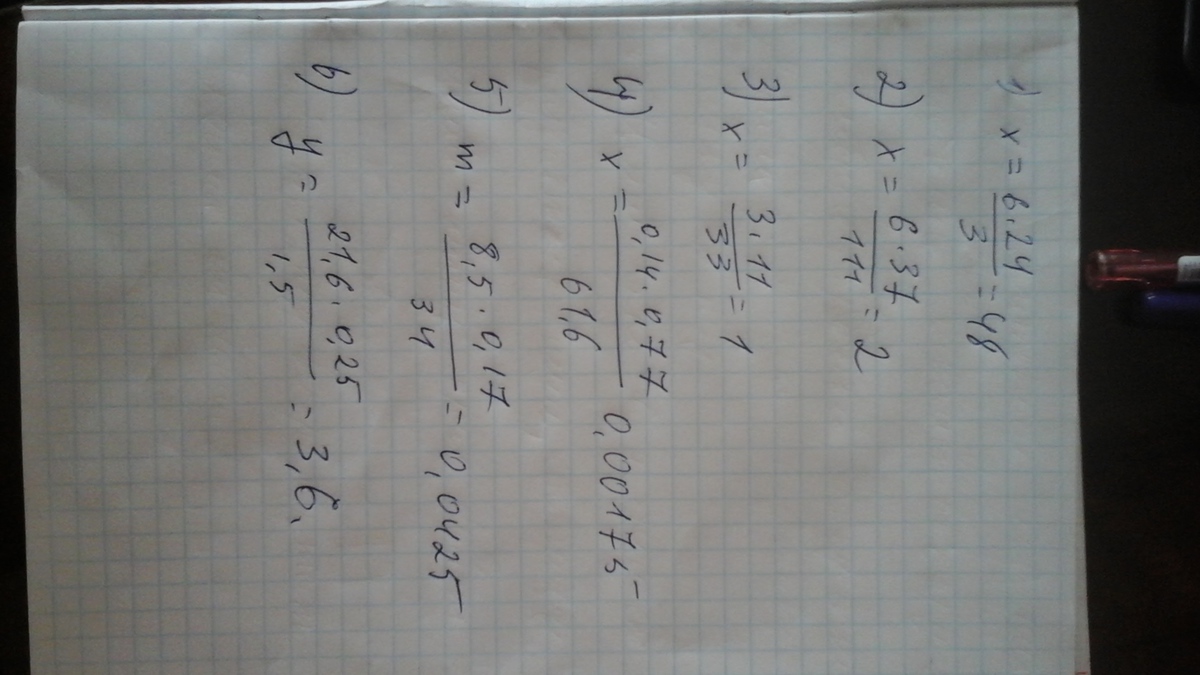 1) x = 6·24/3 = 48
2) x = 6·37/111 = 2
3) x = 3·11/33 = 1
4) x = 0,14·0,77/61,6 0,00175
5) m = 8,5·0,17/34 = 0,0425
6) y = 21,6·0,25/1,5 = 3,6.